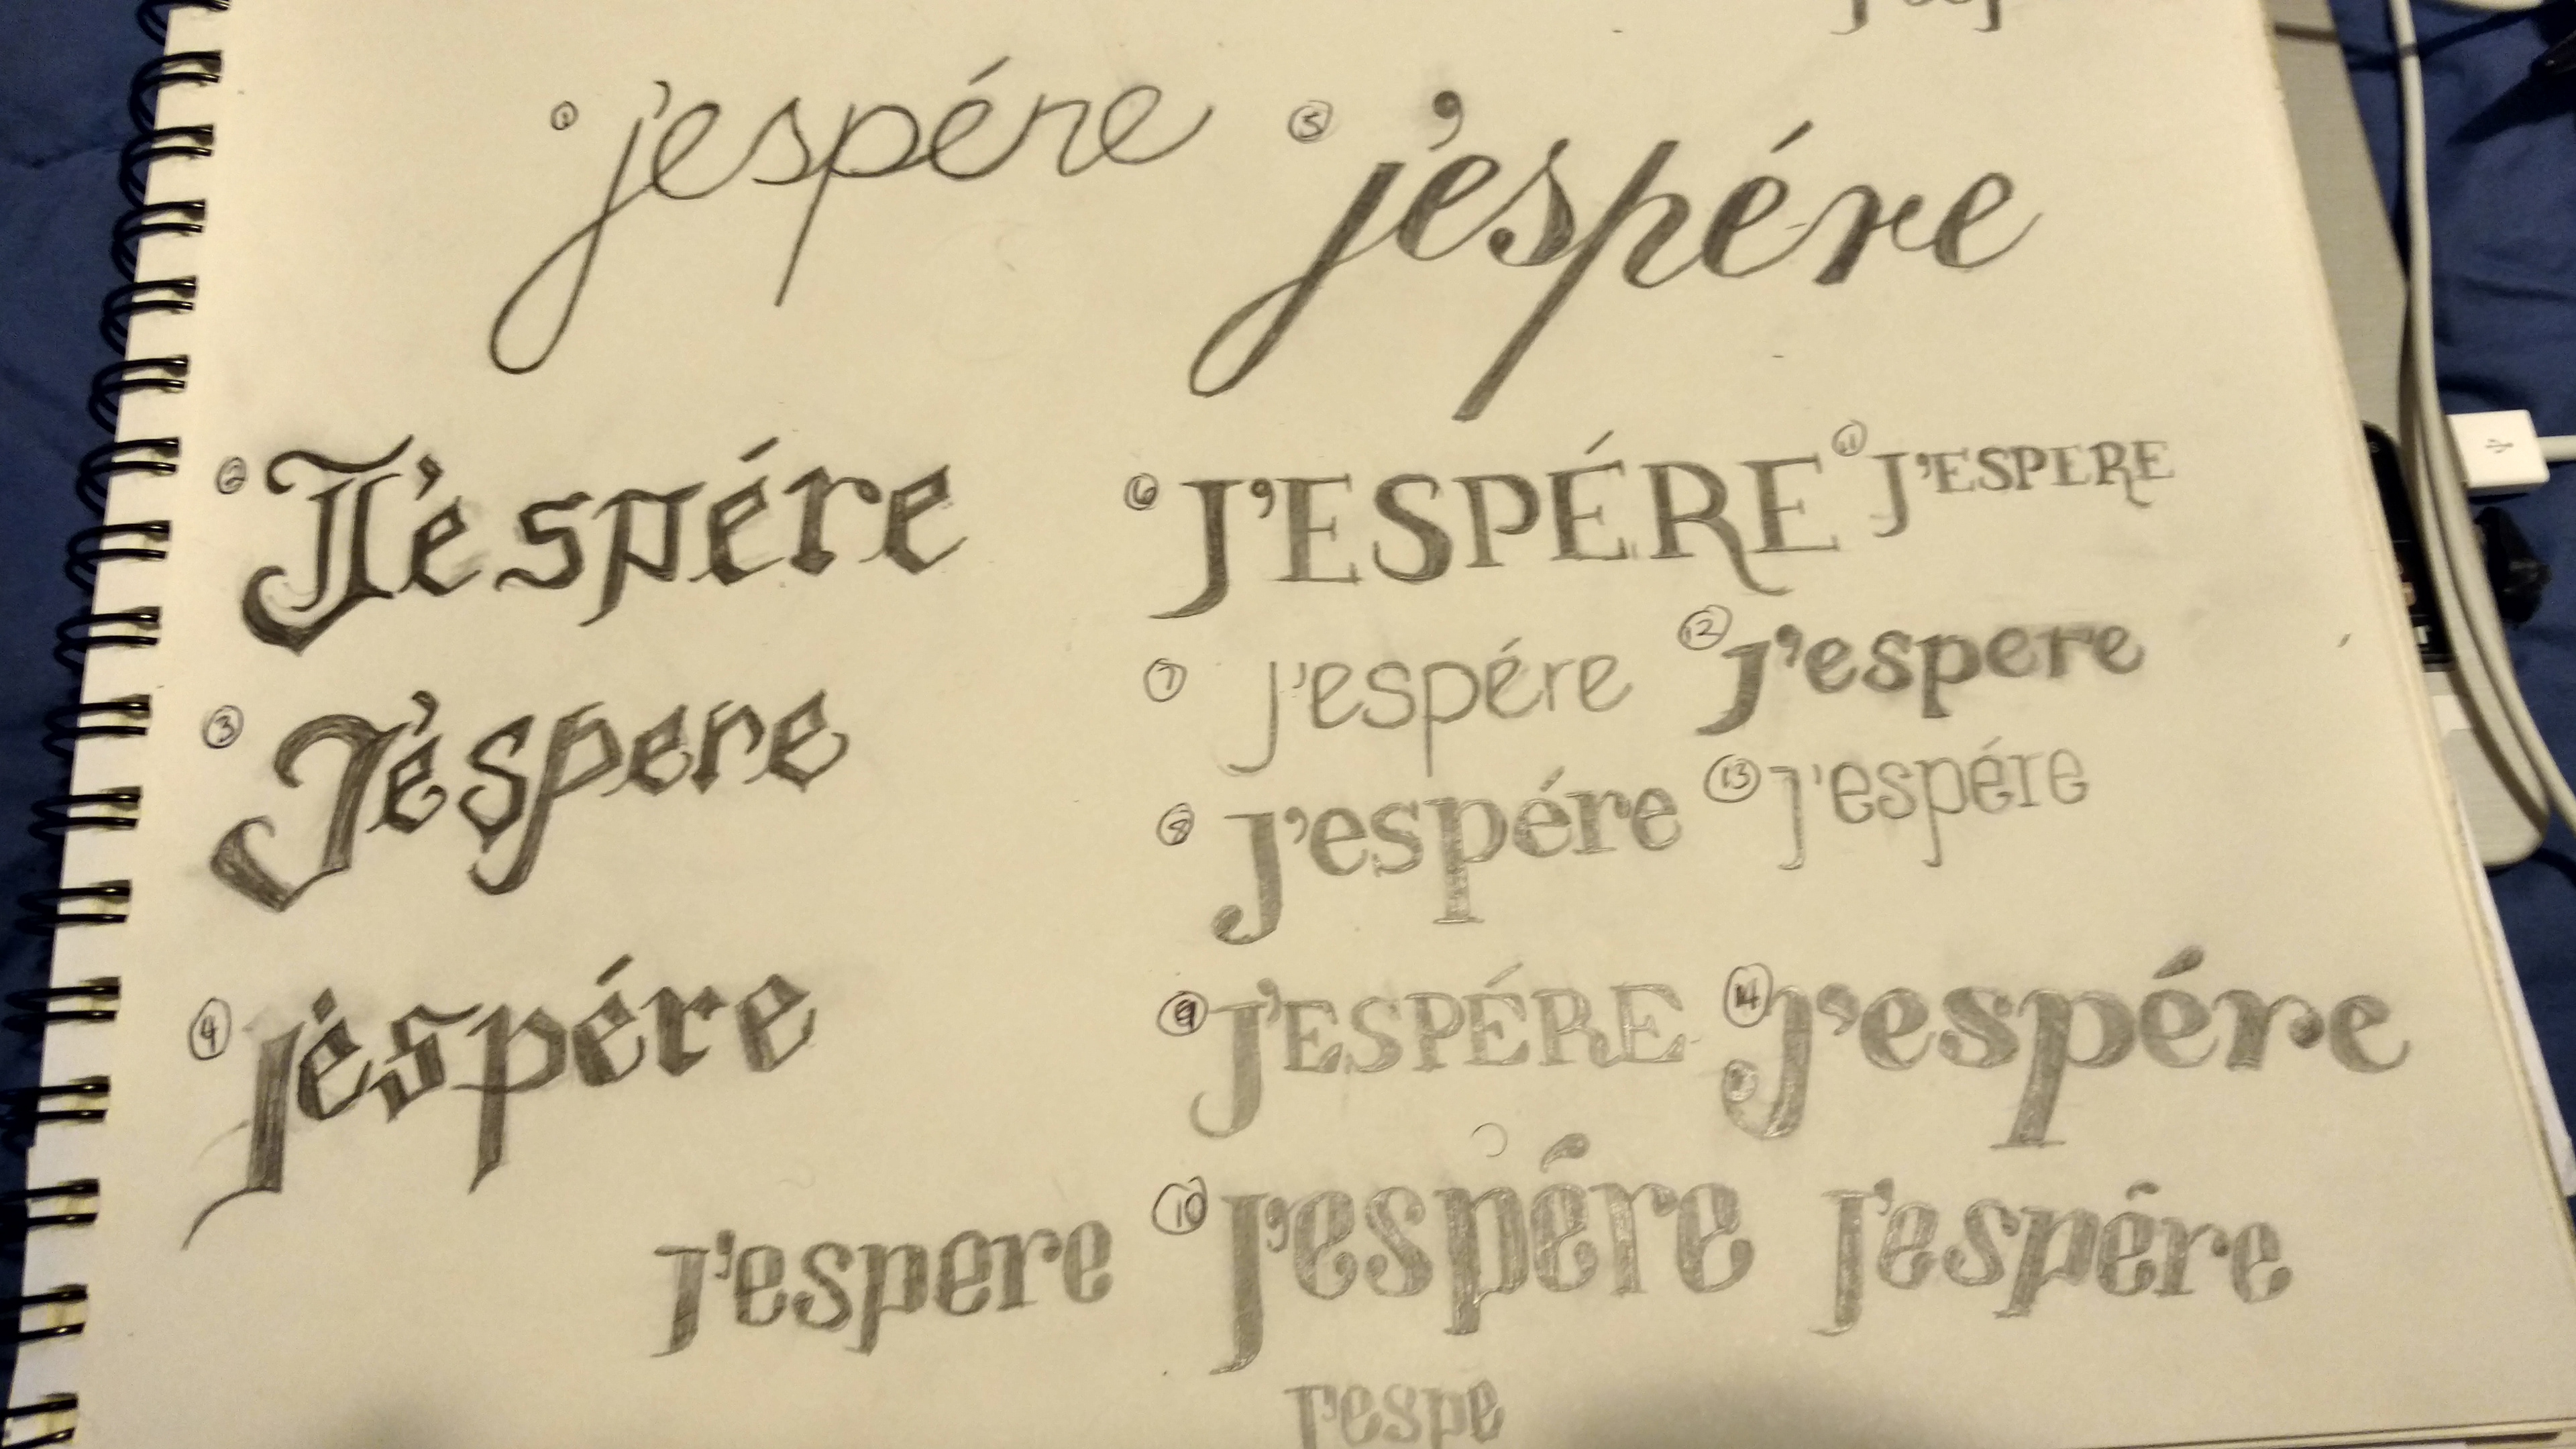 ① j'espére
⑤ j'espére
② J'espére
⑥ J'ESPÉRE
⑪ J'ESPERE
⑦ j'espére
⑫ J'espere
③ J'espere
⑧ J'espére
⑬ J'espére
④ j'espére
⑨ J'ESPÉRE
⑭ J'espére
J'espere
⑩ J'espére
J'espére
J'espe